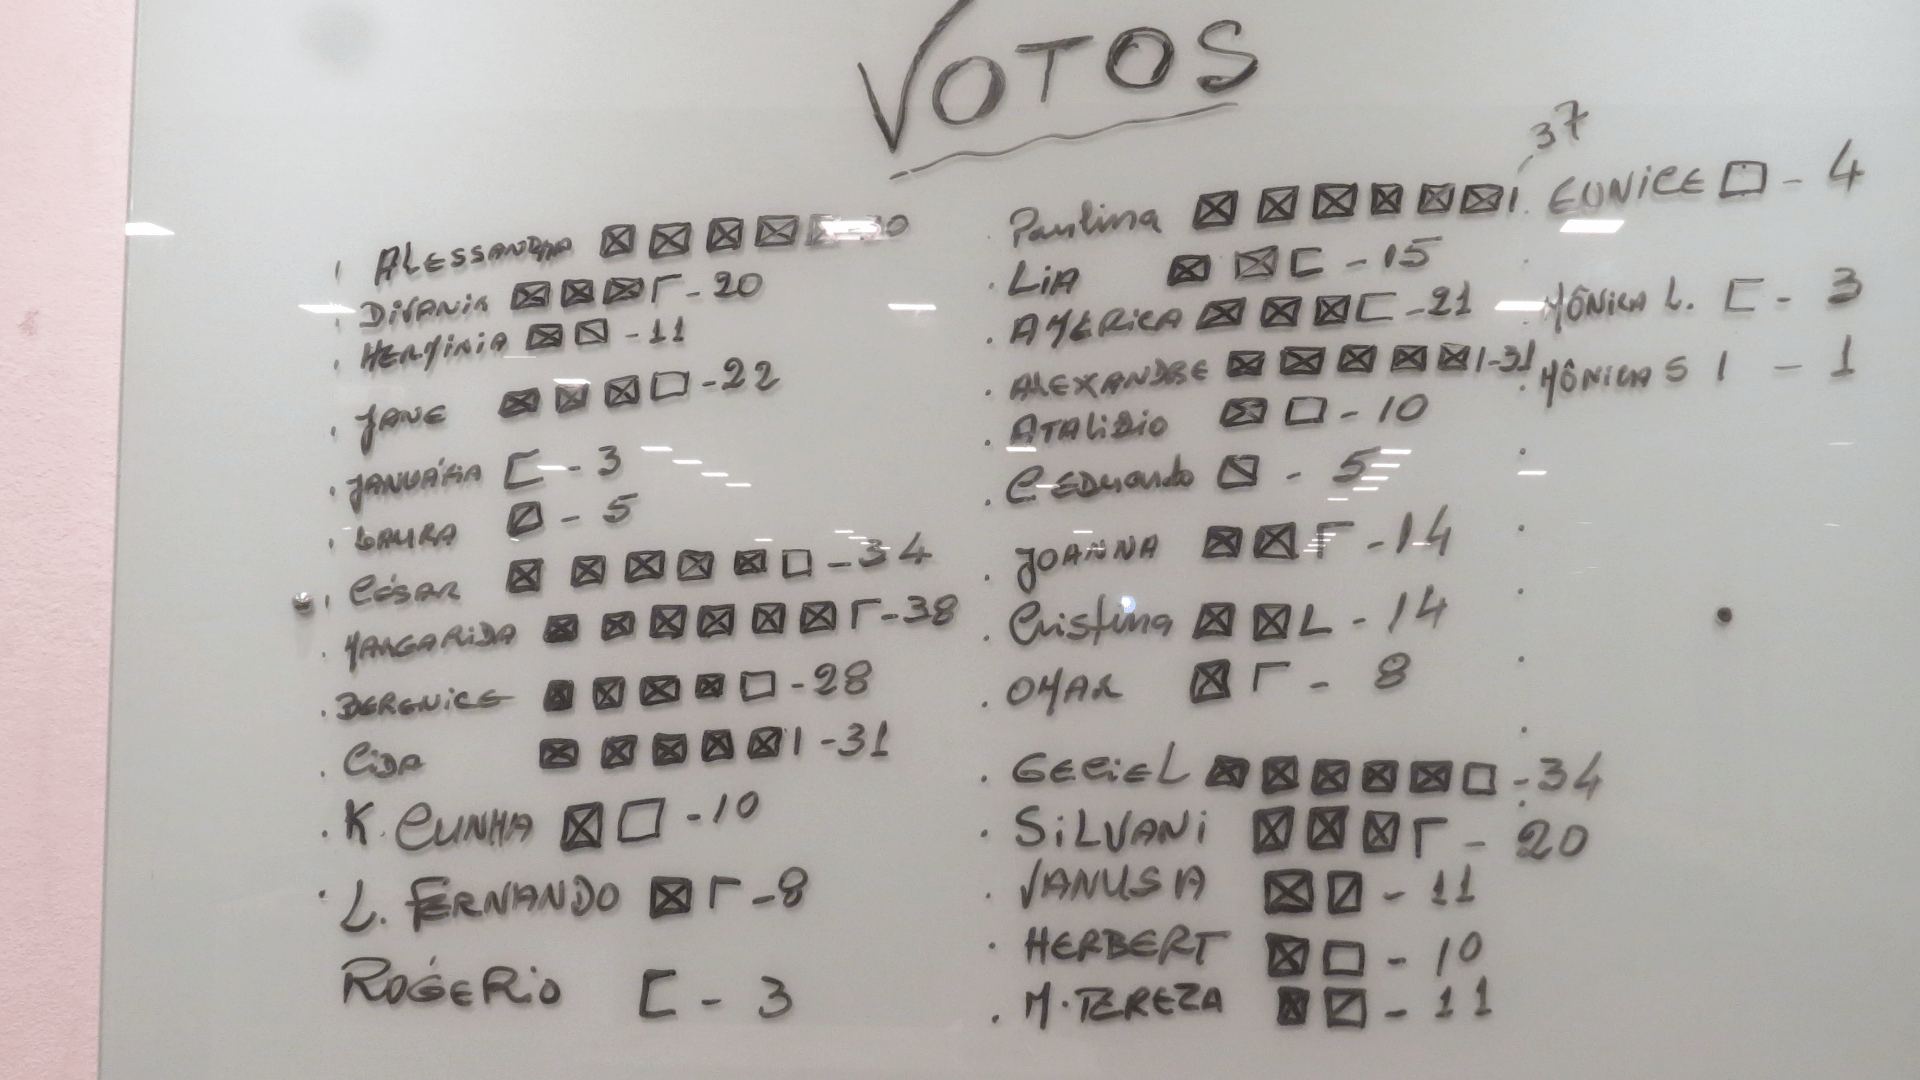 VOTOS
ALESSANDRA
DIVANIA - 20
HERMINIA - 11
JANE - 22
JANUÁRIA - 3
LAURA - 5
CÉSAR - 34
MARGARIDA - 38
BERENICE - 28
CIDA - 31
K. CUNHA - 10
L. FERNANDO - 8
ROGÉRIO - 3
Paulina 37
LIA - 15
AMÉRICA - 21
ALEXANDRE - 31
ATALIDIO - 10
C. EDUARDO - 5
JOANNA - 14
Cristina - 14
OMAR - 8
GECIEL - 34
SILVANI - 20
VANUSA - 11
HERBERT - 10
M. TEREZA - 11
EUNICE - 4
MÔNICA L. - 3
MÔNICA S - 1